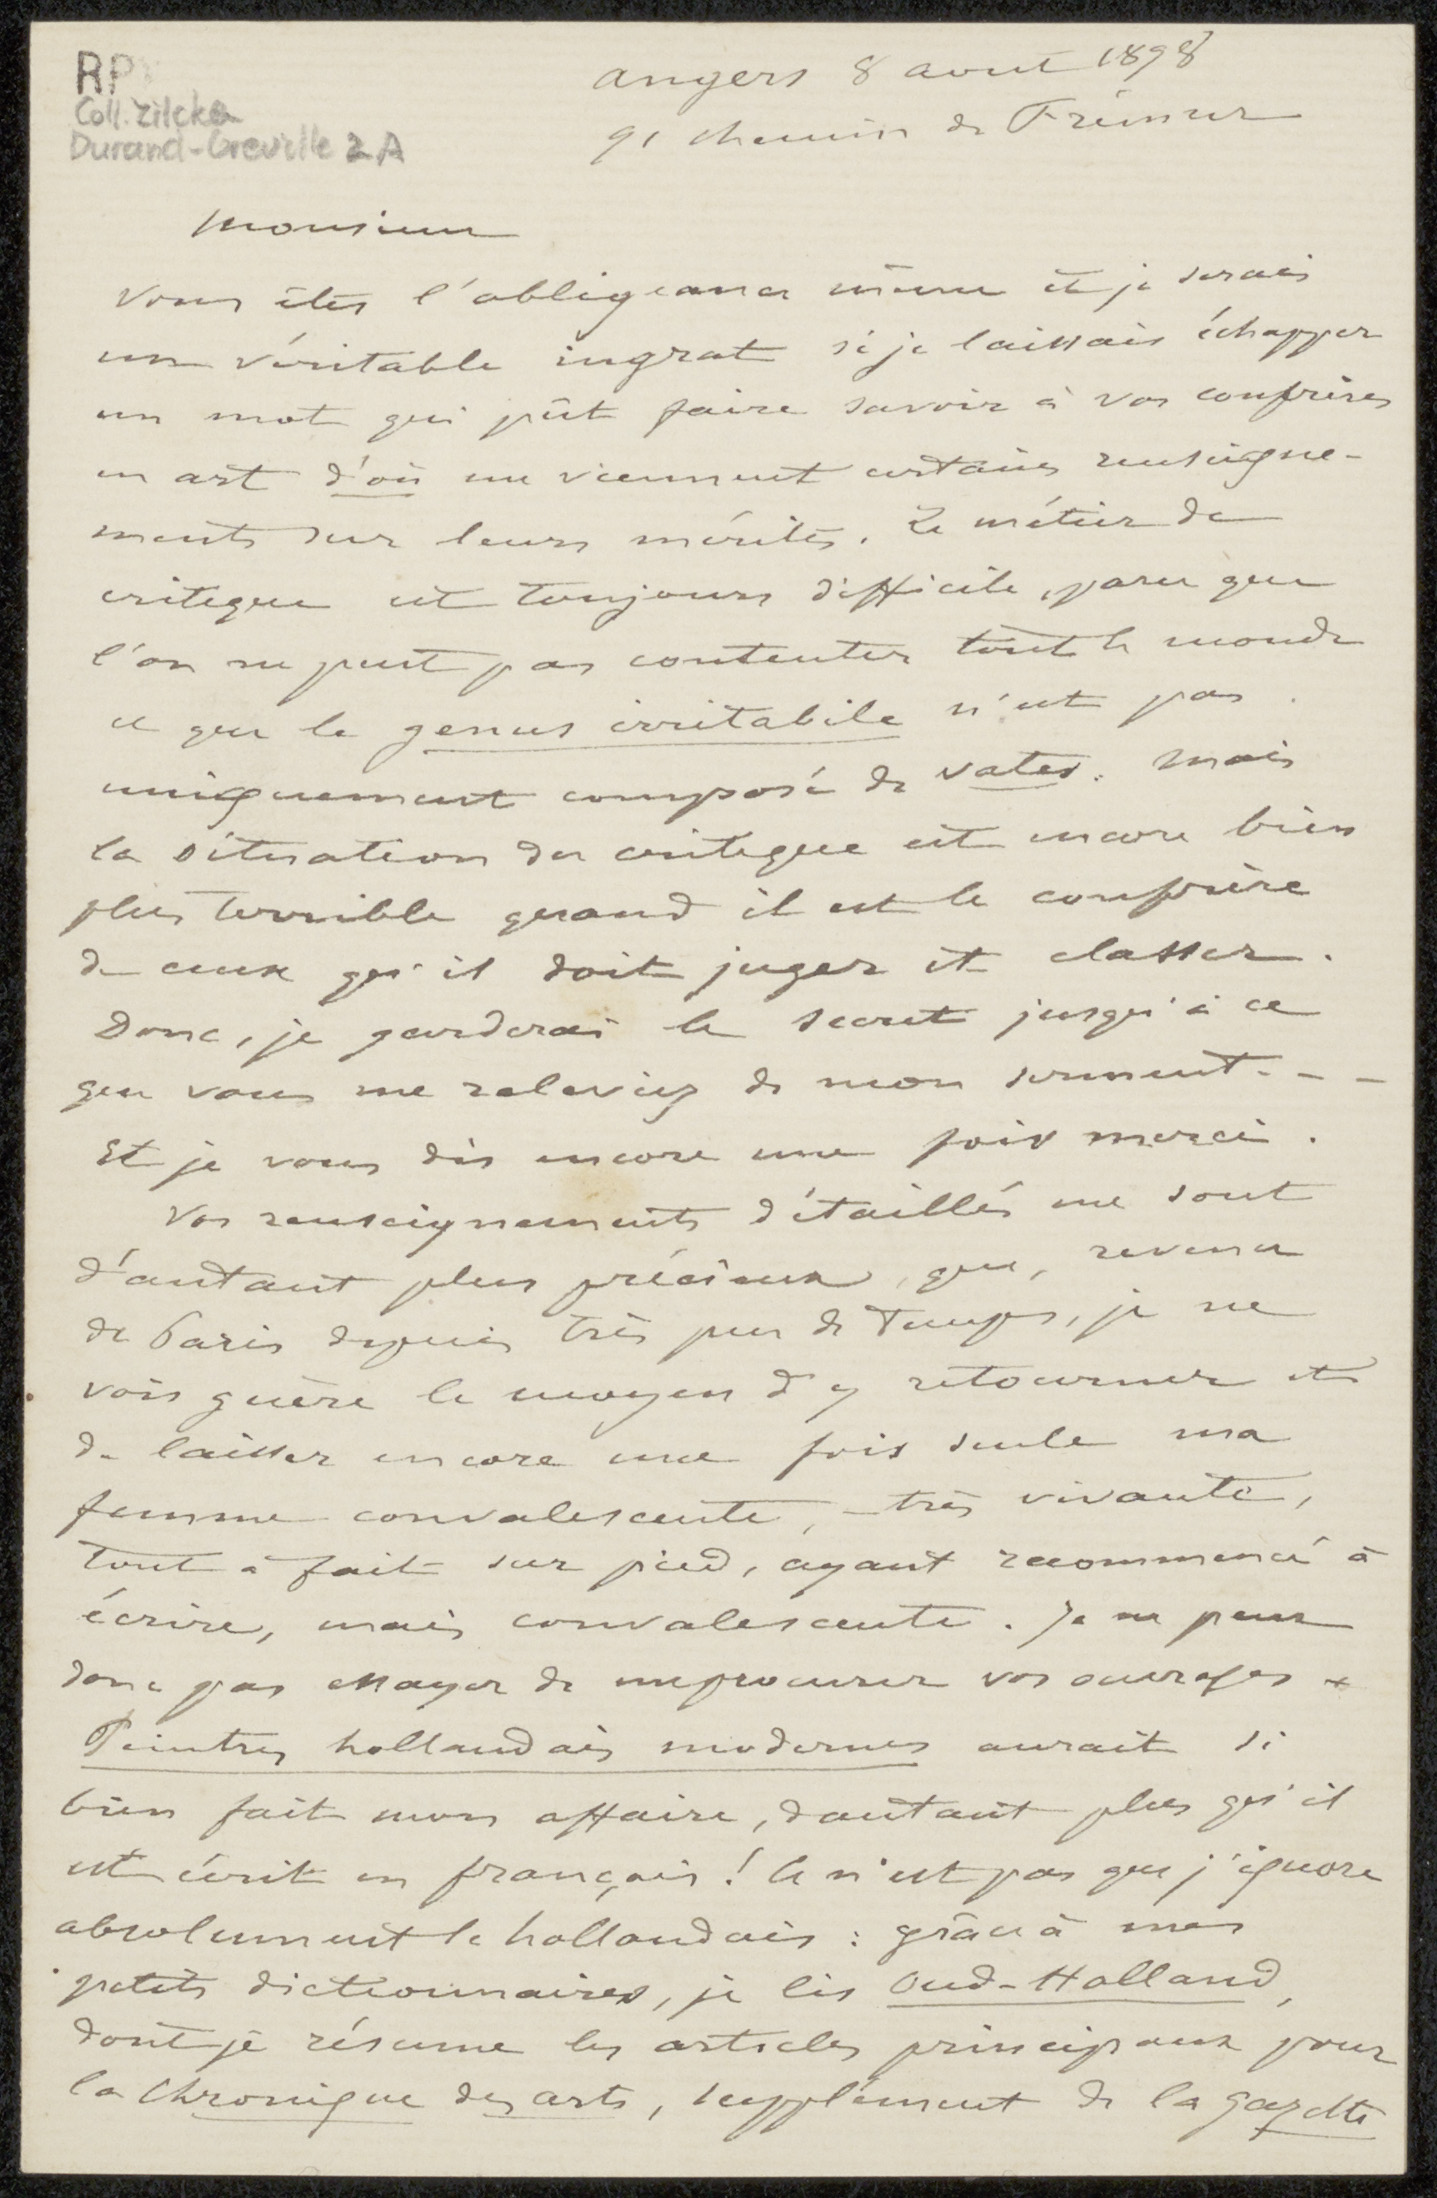 RP
Coll. Zilcken
Durand-Greville 2A
Angers 8 aout 1898
91 chemin de Frémur
Monsieur
Vous êtes l'obligeance même et je serais
un véritable ingrat si je laissais échapper
un mot qui pût faire savoir à vos confrères
en art d'où me viennent certains renseigne-
ments sur leurs mérites. Le métier de
critique est toujours difficile, parce que
l'on ne peut pas contenter tout le monde
et que le genus irritabile n'est pas
uniquement composé de vates. Mais
la situation du critique est encore bien
plus terrible quand il est le confrère
de ceux qu'il doit juger et classer.
Donc, je garderai le secret jusqu'à ce
que vous me releviez de mon serment - - -
Et je vous dis encore une fois merci.
Vos renseignements détaillés me sont
d'autant plus précieux, que, revenu
de Paris depuis très peu de temps, je ne
vois guère le moyen d'y retourner et
de laisser encore une fois seule ma
femme convalescente, - très vivante,
tout à fait sur pied, ayant recommencé à
écrire, mais convalescente. Je ne peux
donc pas essayer de me procurer vos ouvrages.
Peintres hollandais modernes aurait si
bien fait mon affaire, d'autant plus qu'il
est écrit en français! Ce n'est pas que j'ignore
absolument le hollandais : grâce à mes
petits dictionnaires, je lis Oud-Holland,
dont je résume les articles principaux pour
la Chronique des arts, supplément de la Gazette